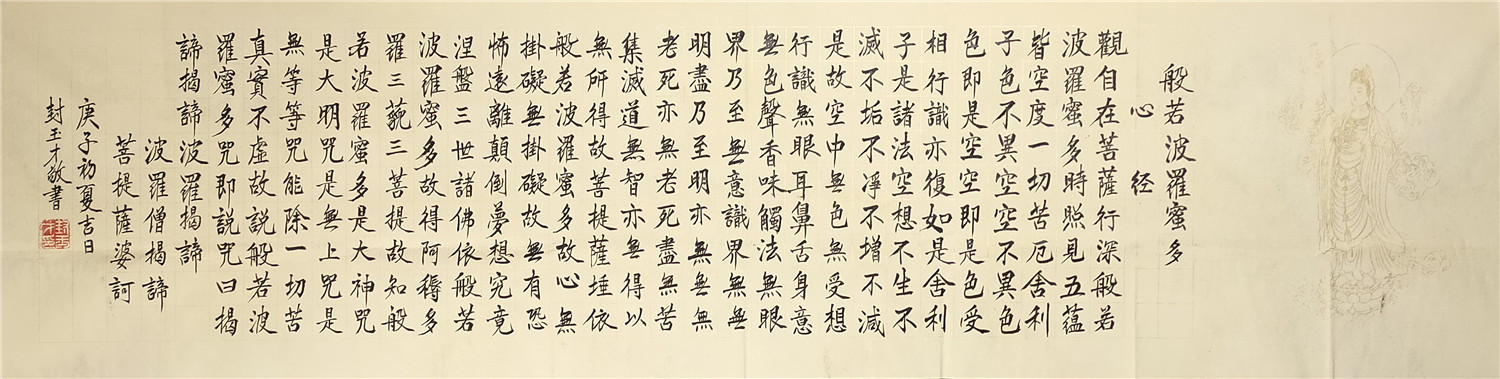 般若波羅蜜多
心经
觀自在菩薩行深般若
波羅蜜多時照見五蘊
皆空度一切苦厄舍利
子色不異空空不異色
色即是空空即是色受
相行識亦復如是舍利
子是諸法空想不生不
滅不垢不凈不增不減
是故空中無色無受想
行識無眼耳鼻舌身意
無色聲香味觸法無眼
界乃至無意識界無無
明盡乃至明亦無無無
老死亦無老死盡無苦
集滅道無智亦無得以
無所得故菩提薩埵依
般若波羅蜜多故心無
掛礙無掛礙故無有恐
怖遠離顛倒夢想究竟
涅盤三世諸佛依般若
波羅蜜多故得阿耨多
羅三藐三菩提故知般
若波羅蜜多是大神咒
是大明咒是無上咒是
無等等咒能除一切苦
真實不虛故説般若波
羅蜜多咒即説咒曰揭
諦揭諦波羅揭諦
波羅僧揭諦
菩提薩婆訶
庚子初夏吉日
封玉才敬書